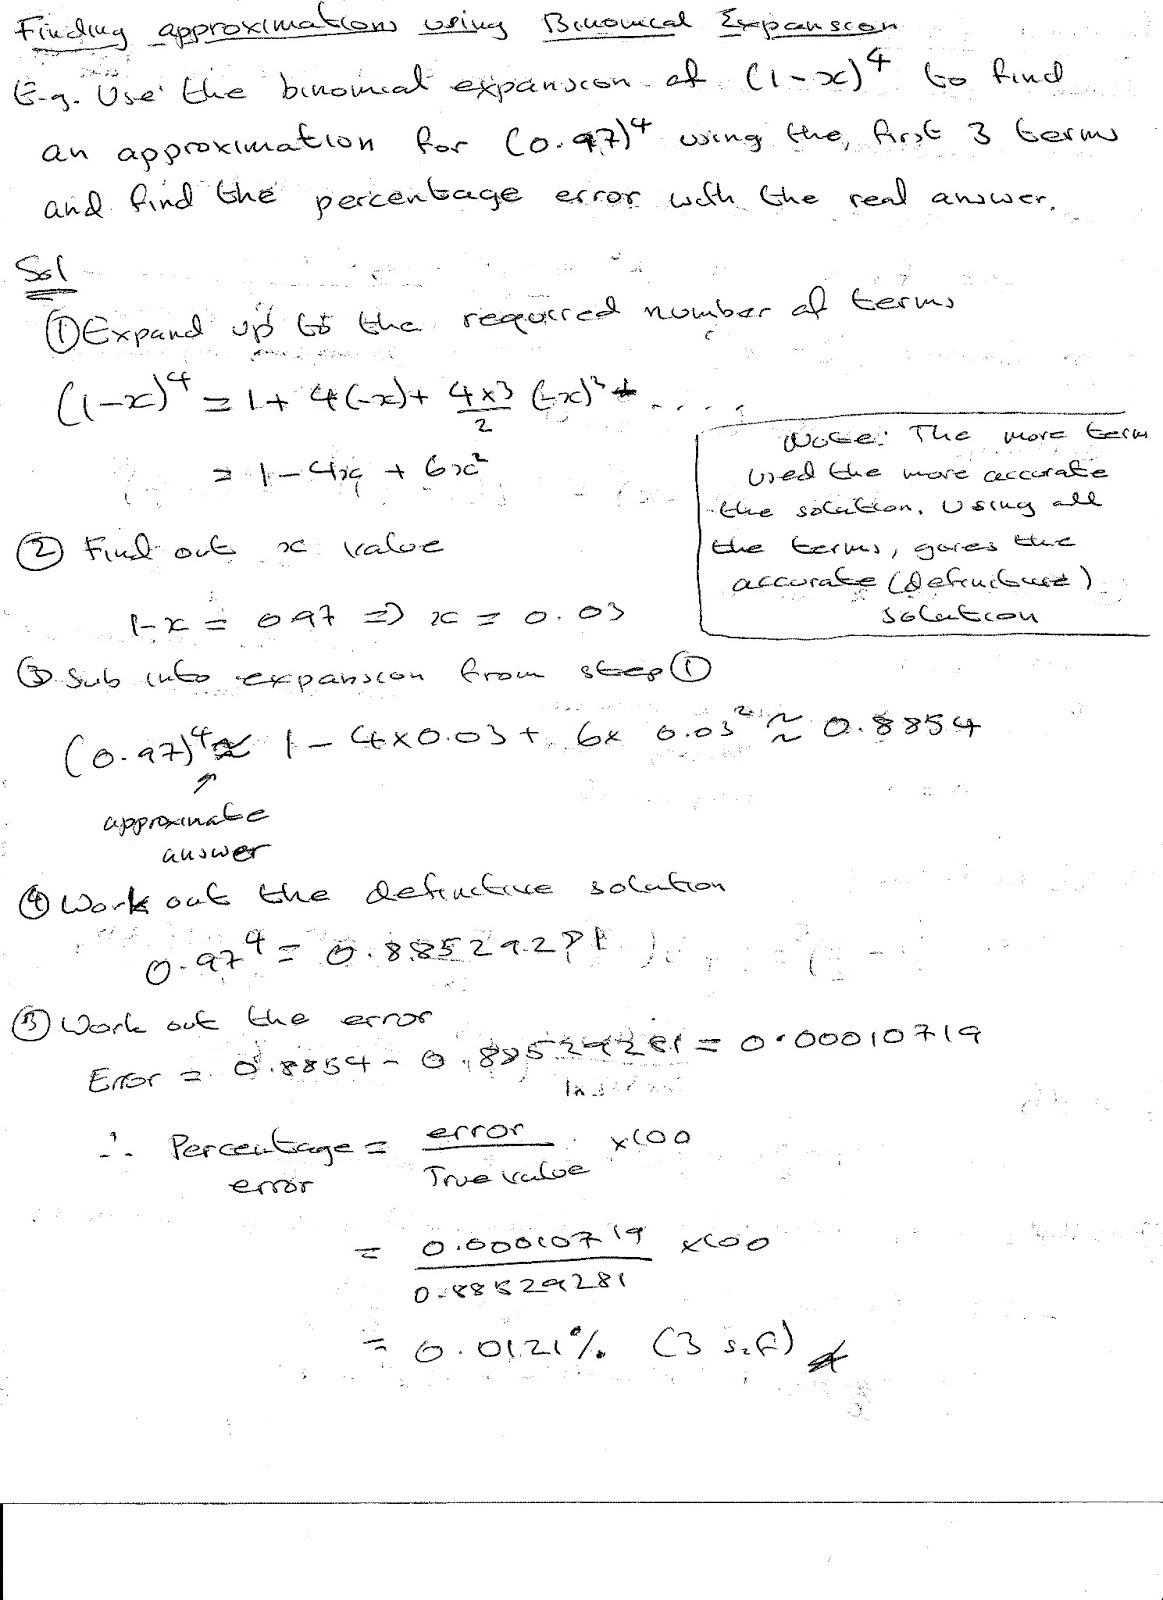 Finding approximations using Binomial Expansion
E.g. Use the binomial expansion of (1-x)^4 to find
an approximation for (0.97)^4 using the first 3 terms
and find the percentage error with the real answer.
Sol
① Expand up to the required number of terms
(1-x)^4 = 1 + 4(-x) + 4×3/2 (-x)^2 + ....
= 1 - 4x + 6x^2
Note: The more terms
used the more accurate
the solution. Using all
the terms, gives the
accurate (definitive)
solution
② Find out x value
1-x = 0.97 ⇒ x = 0.03
③ Sub into expansion from step ①
(0.97)^4 ≈ 1 - 4×0.03 + 6× 0.03^2 ≈ 0.8854
↑
approximate
answer
④ Work out the definitive solution
0.97^4 = 0.88529281
⑤ Work out the error
Error = 0.8854 - 0.88529281 = 0.00010719
∴ Percentage error = error/True value ×100
= 0.00010719/0.88529281 ×100
= 0.0121% (3 s.f)